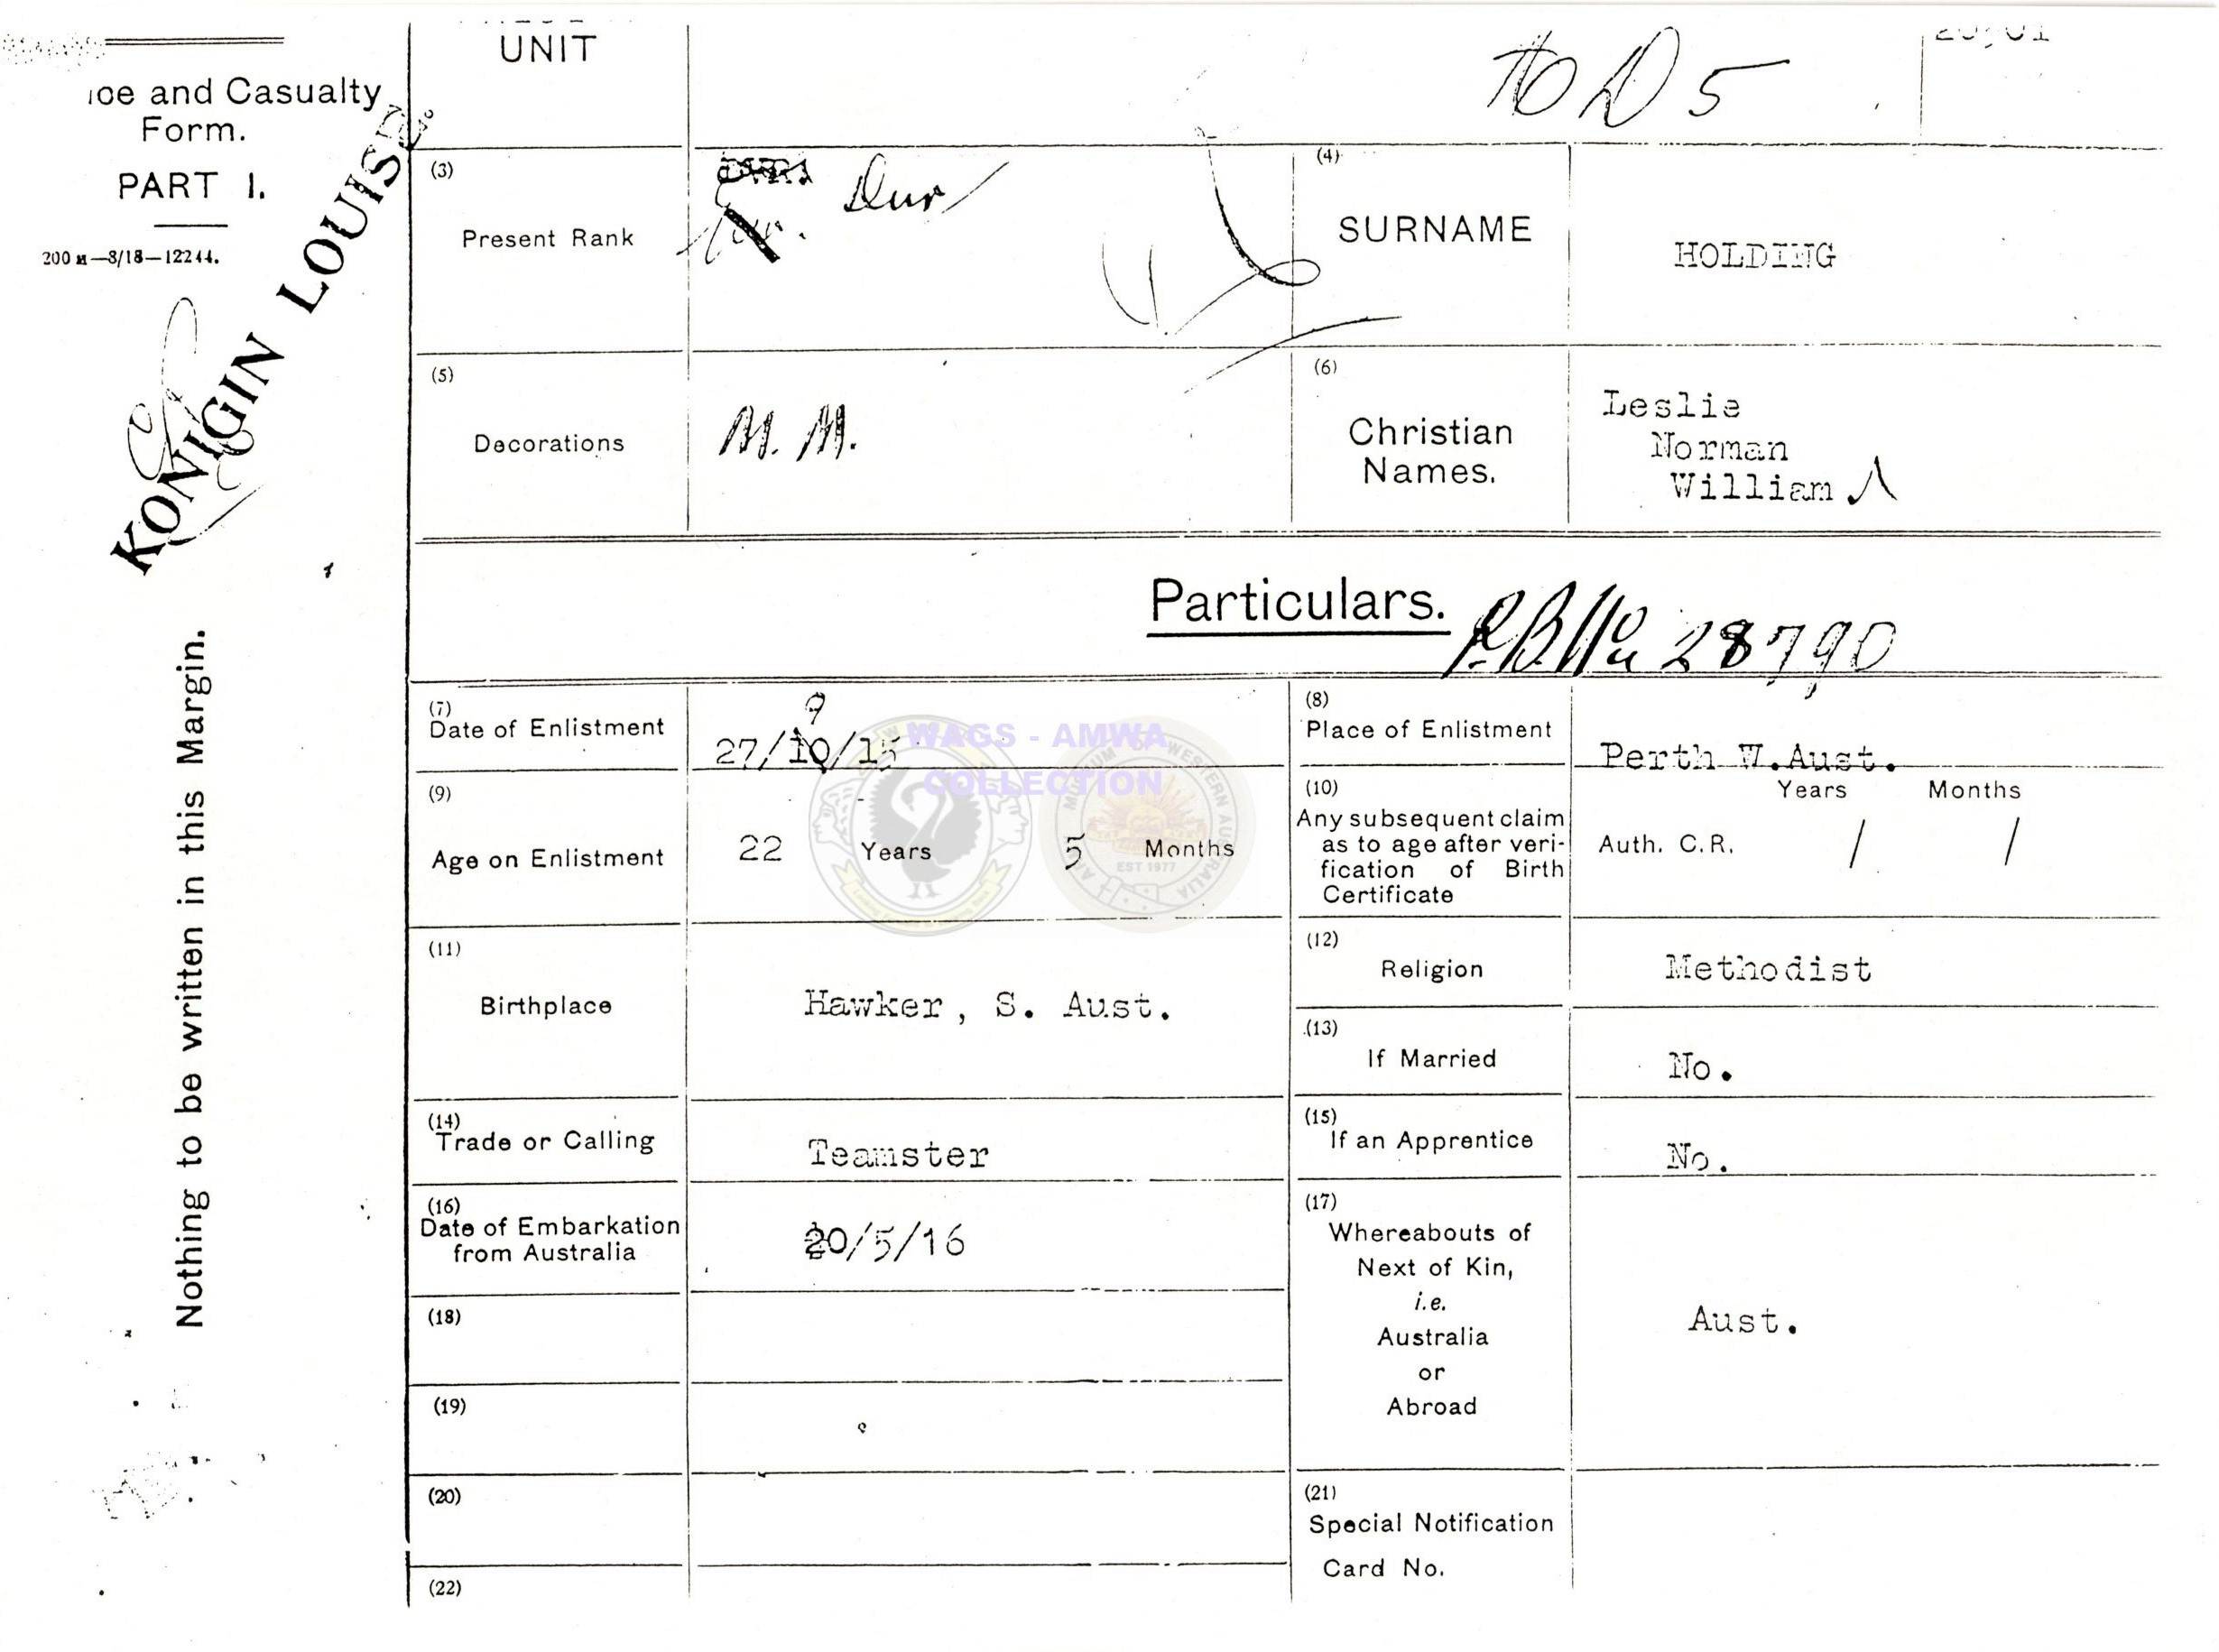 UNIT
ice and Casualty
Form.
PART I.
200 M—8/18—12244.
KONIGIN LOUISE.
Nothing to be written in this Margin.
(3)
Present Rank
Dvr
(4)
SURNAME
HOLDING
(5)
Decorations
M. M.
(6)
Christian
Names.
Leslie
Norman
William
Particulars.
28790
(7)
Date of Enlistment
9
27/10/15
(8)
Place of Enlistment
Perth W.Aust.
(9)
Age on Enlistment
22 Years 5 Months
(10)
Any subsequent claim
as to age after veri-
fication of Birth
Certificate
Years Months
Auth. C.R. / /
(11)
Birthplace
Hawker, S. Aust.
(12)
Religion
Methodist
(13)
If Married
No.
(14)
Trade or Calling
Teamster
(15)
If an Apprentice
No.
(16)
Date of Embarkation
from Australia
20/5/16
(17)
Whereabouts of
Next of Kin,
i.e.
Australia
or
Abroad
Aust.
(18)
(19)
(20)
(21)
Special Notification
Card No.
(22)
WAGS - AMWA
COLLECTION
MUSEUM OF WESTERN AUSTRALIA
EST 1977